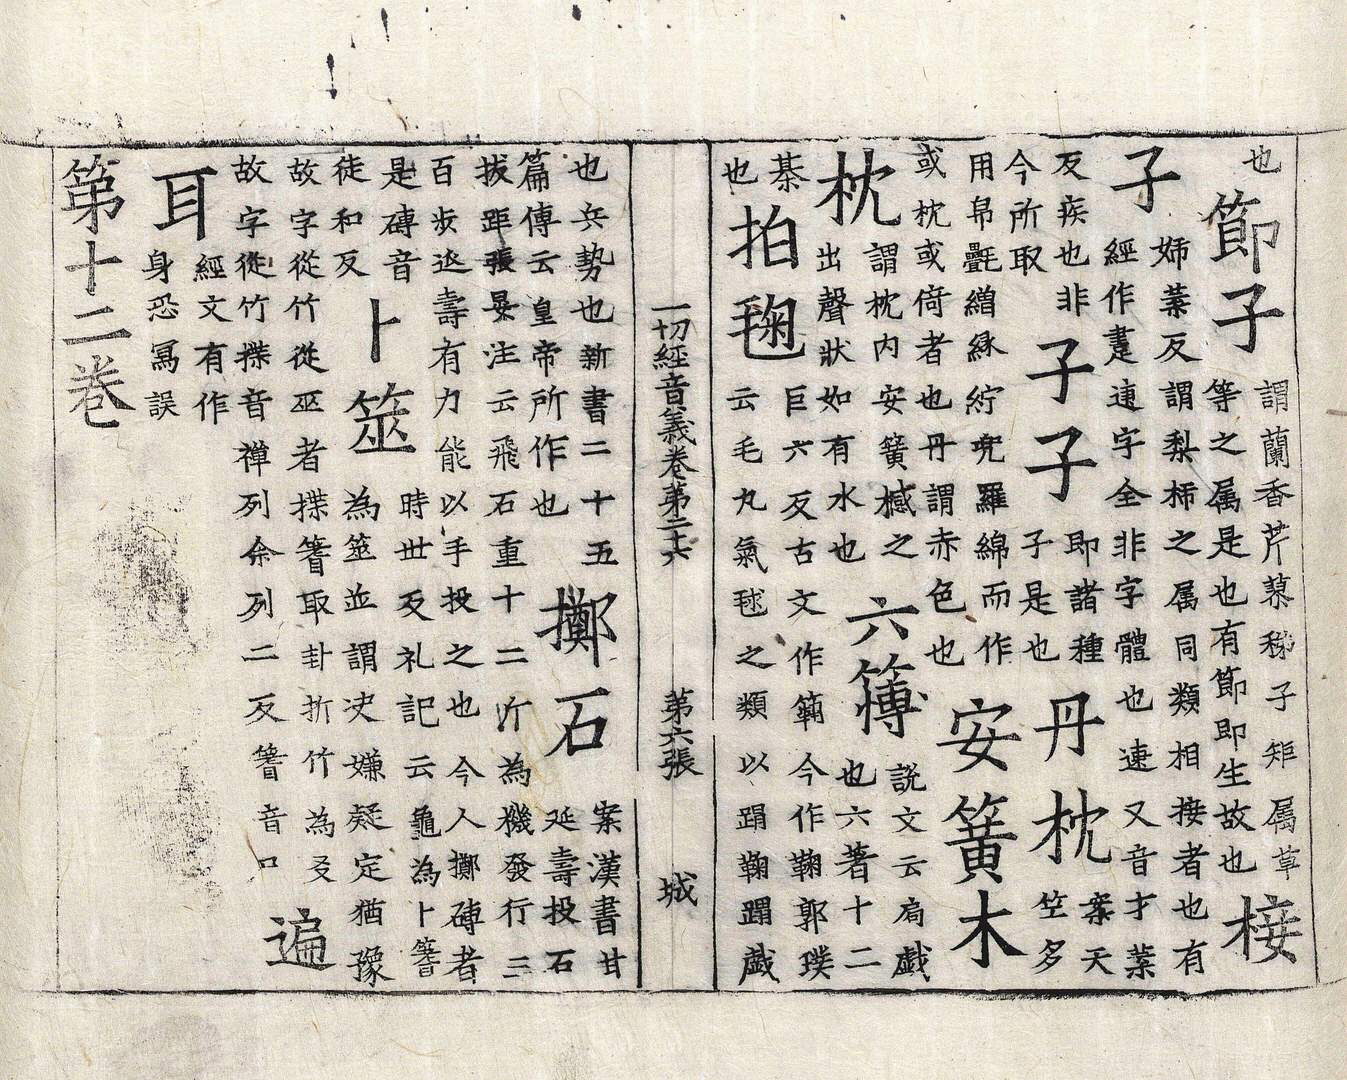 也
節子
謂蘭香芹蓼稊子矩属草
等之属是也有節即生故也
接
子
姊葉反謂梨柿之属同類相接者也有
經作疌速字全非字體也速又音才葉
反疾也非
今所取
子子
即諸種
子是也
丹枕
案天
竺多
用帛氎繒綵紵兜羅綿而作
或枕或倚者也丹謂赤色也
安簧木
枕
謂枕内安簧憾之
出聲狀如有水也
六簙
説文云局戯
也六著十二
棊
也
拍毱
巨六反古文作今作鞠郭璞
云毛丸氣毬之類以蹋鞠蹋戯
一切經音義卷第二十六
第六張
城
也兵勢也新書二十五
篇傳云皇帝所作也
擲石
案漢書甘
延壽投石
拔距張晏注云飛石重十二斤為機發行三
百步迯壽有力能以手投之也今人擲磚者
是磚音
徒和反
卜筮
時世反礼記云龜為卜蓍
為筮並謂决嫌疑定猶豫
故字從竹從巫者揲蓍取卦折竹為爻
故字從竹揲音禅列余列二反蓍音口
遍
耳
經文有作
身恐寫誤
第十二卷